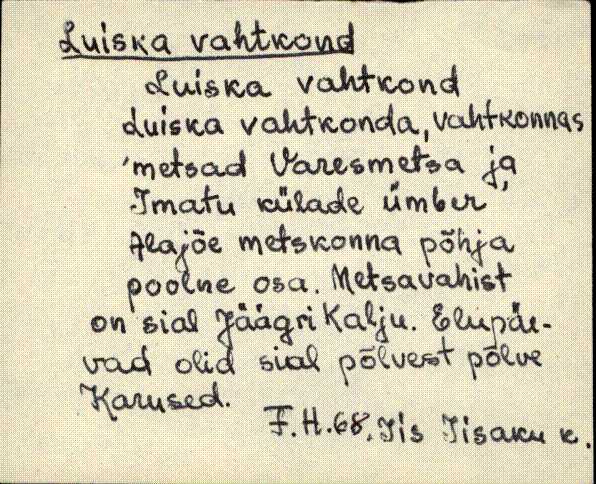 Luiska vahtkond
Luiska vahtkond
Luiska vahtkonda, vahtkonnas
'metsad Varesmetsa ja
Imatu külade ümber,
Alajõe metskonna põhja
poolne osa. Metsavahist
on sial Jäägri Kalju. Elupäe-
vad olid sial põlvest põlve
Karused.
F.H.68. Iis Iisaku k.